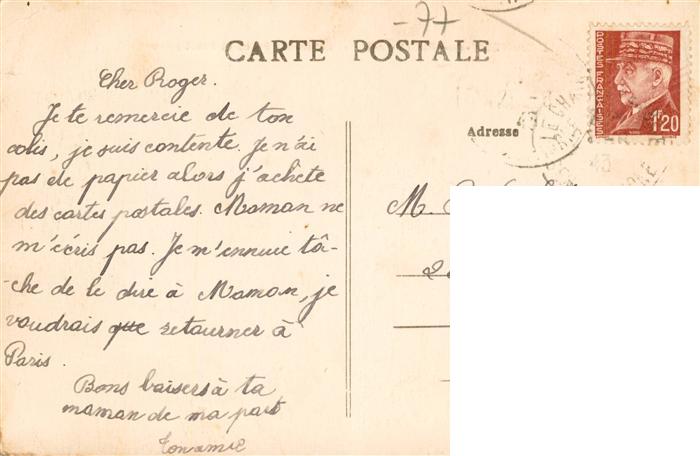 -77
CARTE POSTALE
POSTES FRANÇAISES
1F20
Cher Roger.
Je te remercie de ton
colis, je suis contente. Je n'ai
pas de papier alors j'achète
des cartes postales. Maman ne
m'écris pas. Je m'ennuie tâ-
-che de le dire à Maman, je
voudrais que retourner à
Paris.
Bons baisers à ta
maman de ma part
Ton amie
Adresse
M.
43